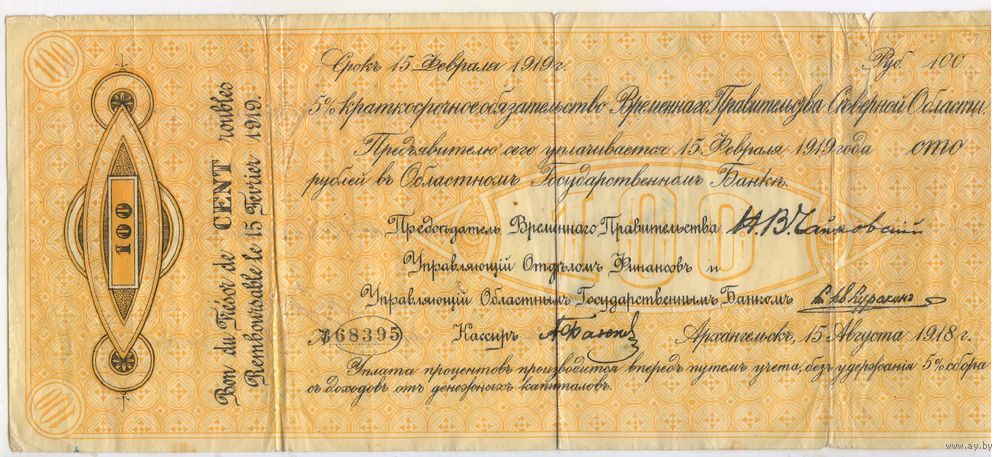 100
Срокъ 15 Февраля 1919 г. Руб. 100
5% краткосрочное обязательство Временнаго Правительства Сѣверной Области.
Предъявителю сего уплачивается 15 Февраля 1919 года сто
рублей въ Областномъ Государственномъ Банкѣ.
100
Предсѣдатель Временнаго Правительства Н. В. Чайковскій
Управляющій Отдѣломъ Финансовъ и
Управляющій Областнымъ Государственнымъ Банкомъ Куракинъ
№ 68395 Кассиръ Архангельскъ, 15 Августа 1918 г.
Уплата процентовъ производится впередъ путемъ учета, безъ удержанія 5% сбора
съ доходовъ отъ денежныхъ капиталовъ.
100
Bon du Trésor de CENT roubles
Remboursable le 15 Fevrier 1919.
100
www.ay.by